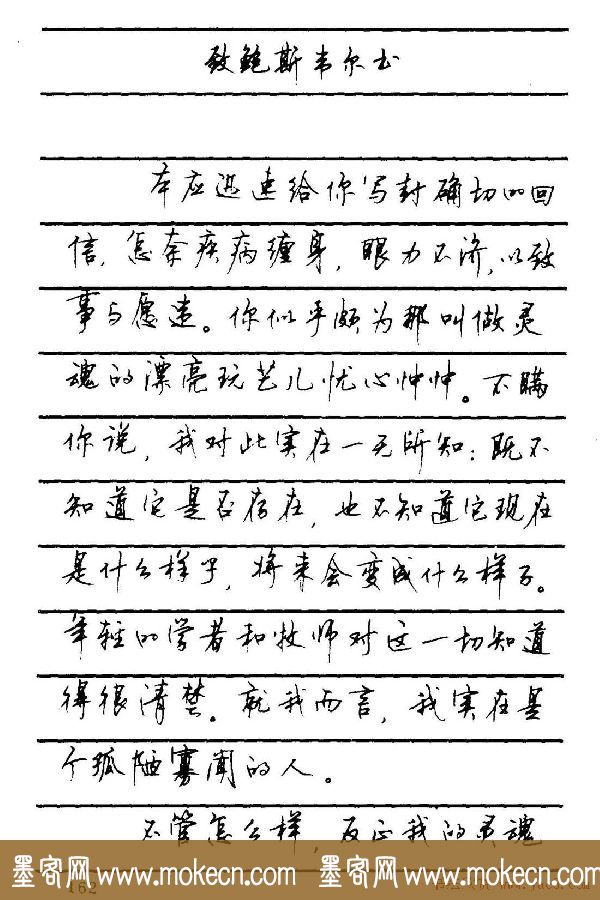 致鲍斯韦尔书
本应迅速给你写封确切的回
信，怎奈疾病缠身，眼力不济，以致
事与愿违。你似乎颇为那叫做灵
魂的漂亮玩艺儿忧心忡忡。不瞒
你说，我对此实在一无所知：既不
知道它是否存在，也不知道它现在
是什么样子，将来会变成什么样子。
年轻的学者和牧师对这一切知道
得很清楚。就我而言，我实在是
个孤陋寡闻的人。
不管怎么样，反正我的灵魂
墨客网 www.mokecn.com 墨客网 www.mokecn.com
162